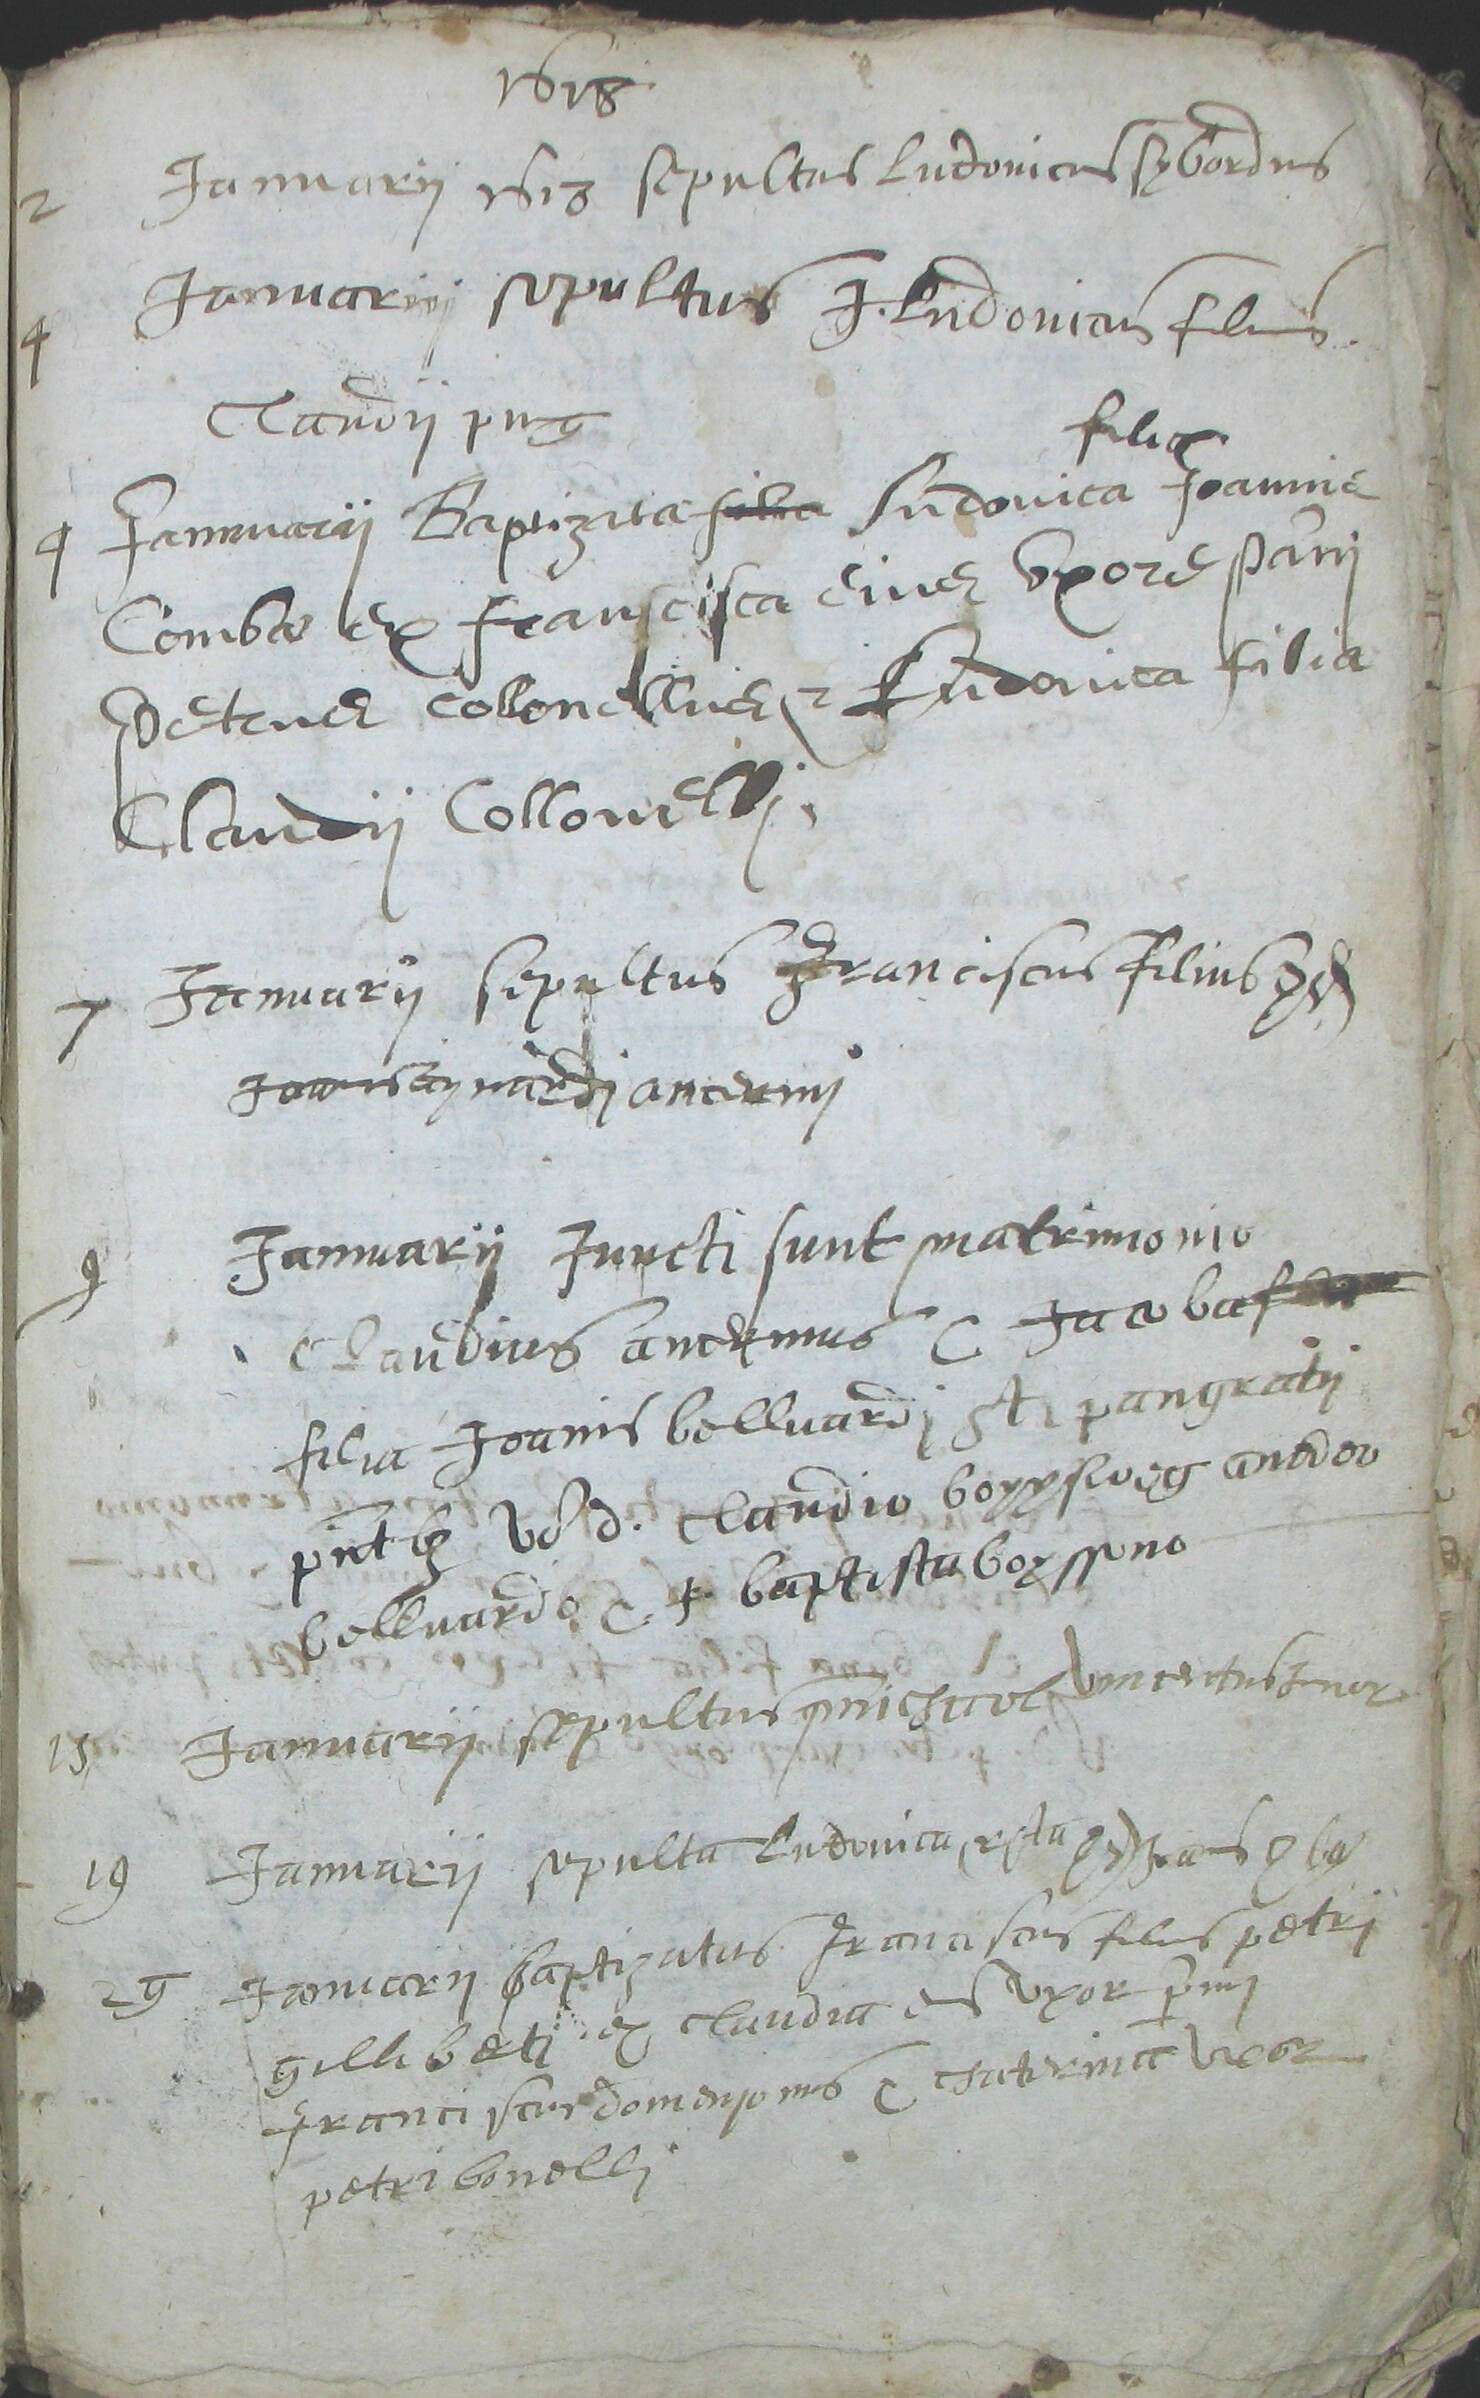 1618
2 Januarij 1618 sepultus Ludovicus sybordus
4 Januarij sepultus J. Ludovicus filius
Claudij pug
filia
9 Januarii Baptizata Ludovica Joannis
Comba ex Franscisca eius uxore Patrini
Petrus Collonellus & Ludovica filia
Claudij Collonelli
7 Januarij sepultus Franciscus filius
anthermj
9 Januarij Juncti sunt matrimonio
Claudius anthermus & Jacoba
filia Joanis belluardj sti pangratij
pntbs d. Claudio amedeo
belluardo & J. baptista boyssono
15 Januarij sepultus michael
19 Januarij sepulta Ludovica
29 Januarij baptizatus Franciscus filius petrj
gillibertj ex Claudia eius uxor
Franciscus & Chaterina uxor
petri bonellj